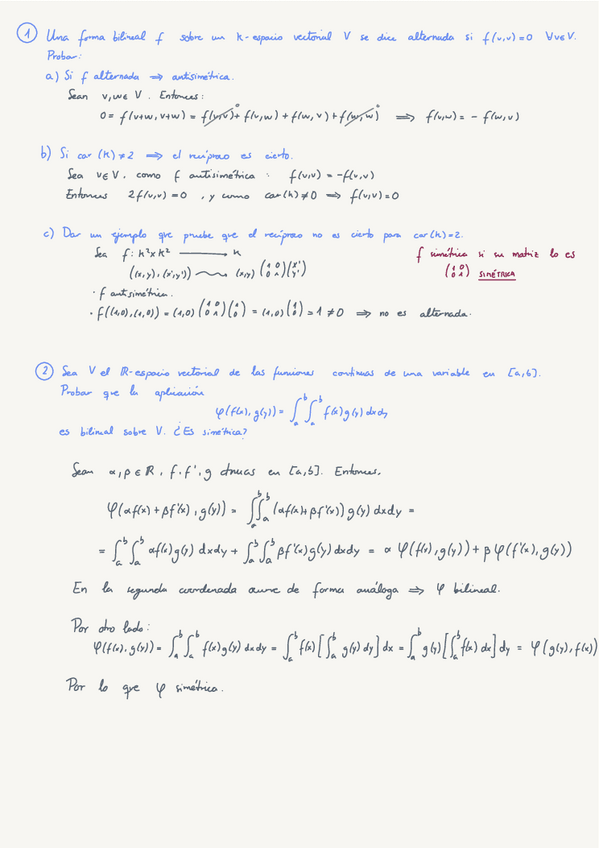 1 Una forma bilineal f sobre un k-espacio vectorial V se dice alternada si f(v,v)=0 ∀v∈V.
Probar:
a) Si f alternada ⟹ antisimétrica.
Sean v,w∈V. Entonces:
0 = f(v+w, v+w) = f(v,v) + f(v,w) + f(w,v) + f(w,w) ⟹ f(v,w) = - f(w,v)
b) Si car(k)≠2 ⟹ el recíproco es cierto.
Sea v∈V, como f antisimétrica: f(v,v) = -f(v,v)
Entonces 2f(v,v)=0, y como car(k)≠0 ⟹ f(v,v)=0
c) Dar un ejemplo que pruebe que el recíproco no es cierto para car(k)=2.
Sea f: k²×k² ⟶ k
((x,y),(x',y')) ⇝ (x,y) (1 0 / 0 1) (x' / y')
f simétrica si su matriz lo es
(1 0 / 0 1) SIMÉTRICA
· f antisimétrica.
· f((1,0),(1,0)) = (1,0) (1 0 / 0 1) (1 / 0) = (1,0) (1 / 0) = 1 ≠ 0 ⟹ no es alternada.
2 Sea V el ℝ-espacio vectorial de las funciones continuas de una variable en [a,b].
Probar que la aplicación
φ(f(x), g(y)) = ∫_a^b ∫_a^b f(x)g(y) dxdy
es bilineal sobre V. ¿Es simétrica?
Sean α,β∈ℝ, f, f', g ctnuas en [a,b]. Entonces,
φ(αf(x) + βf'(x), g(y)) = ∫_a^b ∫_a^b (αf(x)+βf'(x)) g(y) dxdy =
= ∫_a^b ∫_a^b αf(x)g(y) dxdy + ∫_a^b ∫_a^b βf'(x)g(y) dxdy = α φ(f(x), g(y)) + β φ(f'(x), g(y))
En la segunda coordenada ocurre de forma análoga ⟹ φ bilineal.
Por otro lado:
φ(f(x), g(y)) = ∫_a^b ∫_a^b f(x)g(y) dxdy = ∫_a^b f(x) [∫_a^b g(y) dy] dx = ∫_a^b g(y) [∫_a^b f(x) dx] dy = φ(g(y), f(x))
Por lo que φ simétrica.